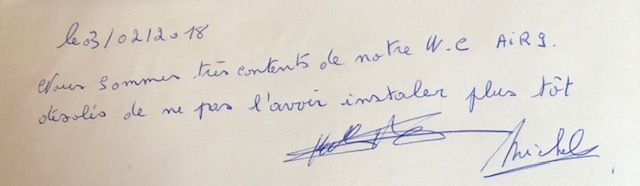 le 03/02/2018
Nous sommes très contents de notre W.C AiR9.
désolés de ne pas l'avoir instaler plus tôt
Michel